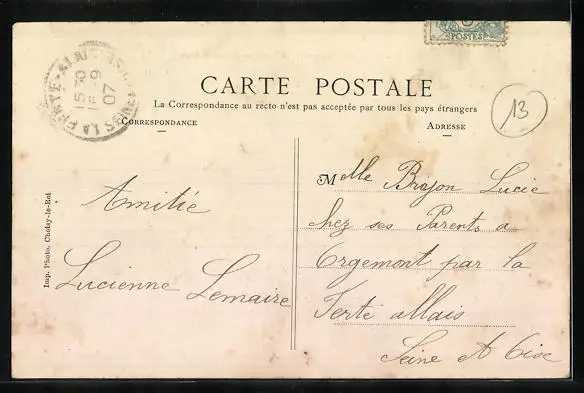 POSTES
CARTE POSTALE
La Correspondance au recto n'est pas acceptée par tous les pays étrangers
CORRESPONDANCE
ADRESSE
13
15 30
9
07
Amitié
Lucienne Lemaire
Mlle Brijon Lucie
chez ses Parents a
Orgemont par la
Ferté allais
Seine et Oise
Imp. Photo. Choisy-le-Roi